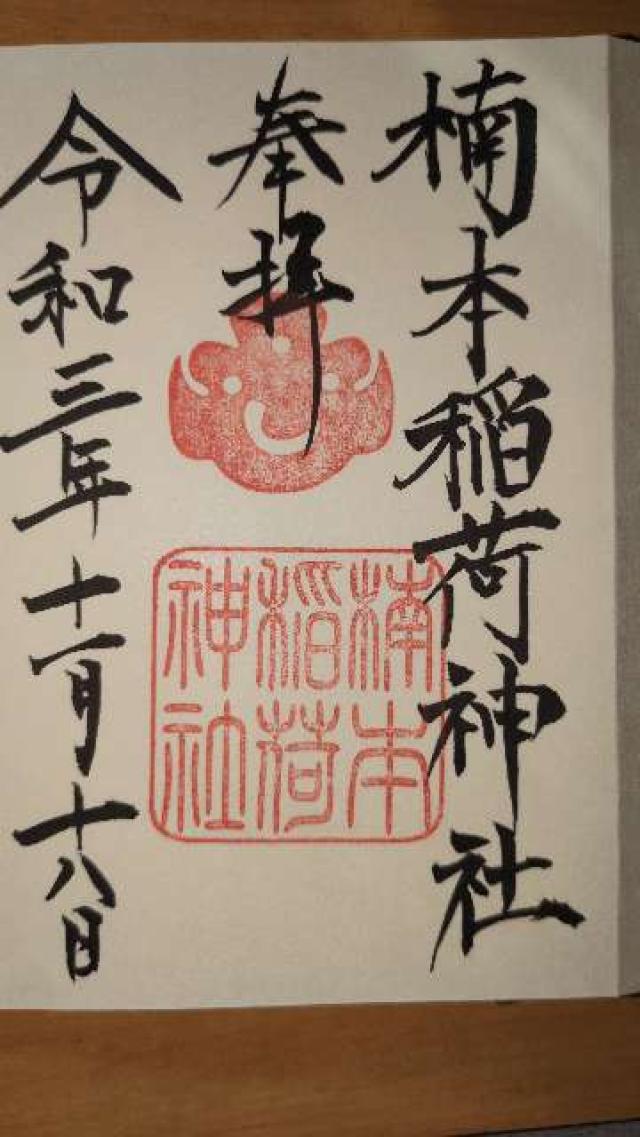 楠本稲荷神社
奉拝
令和三年十一月十八日
楠本
稲荷
神社